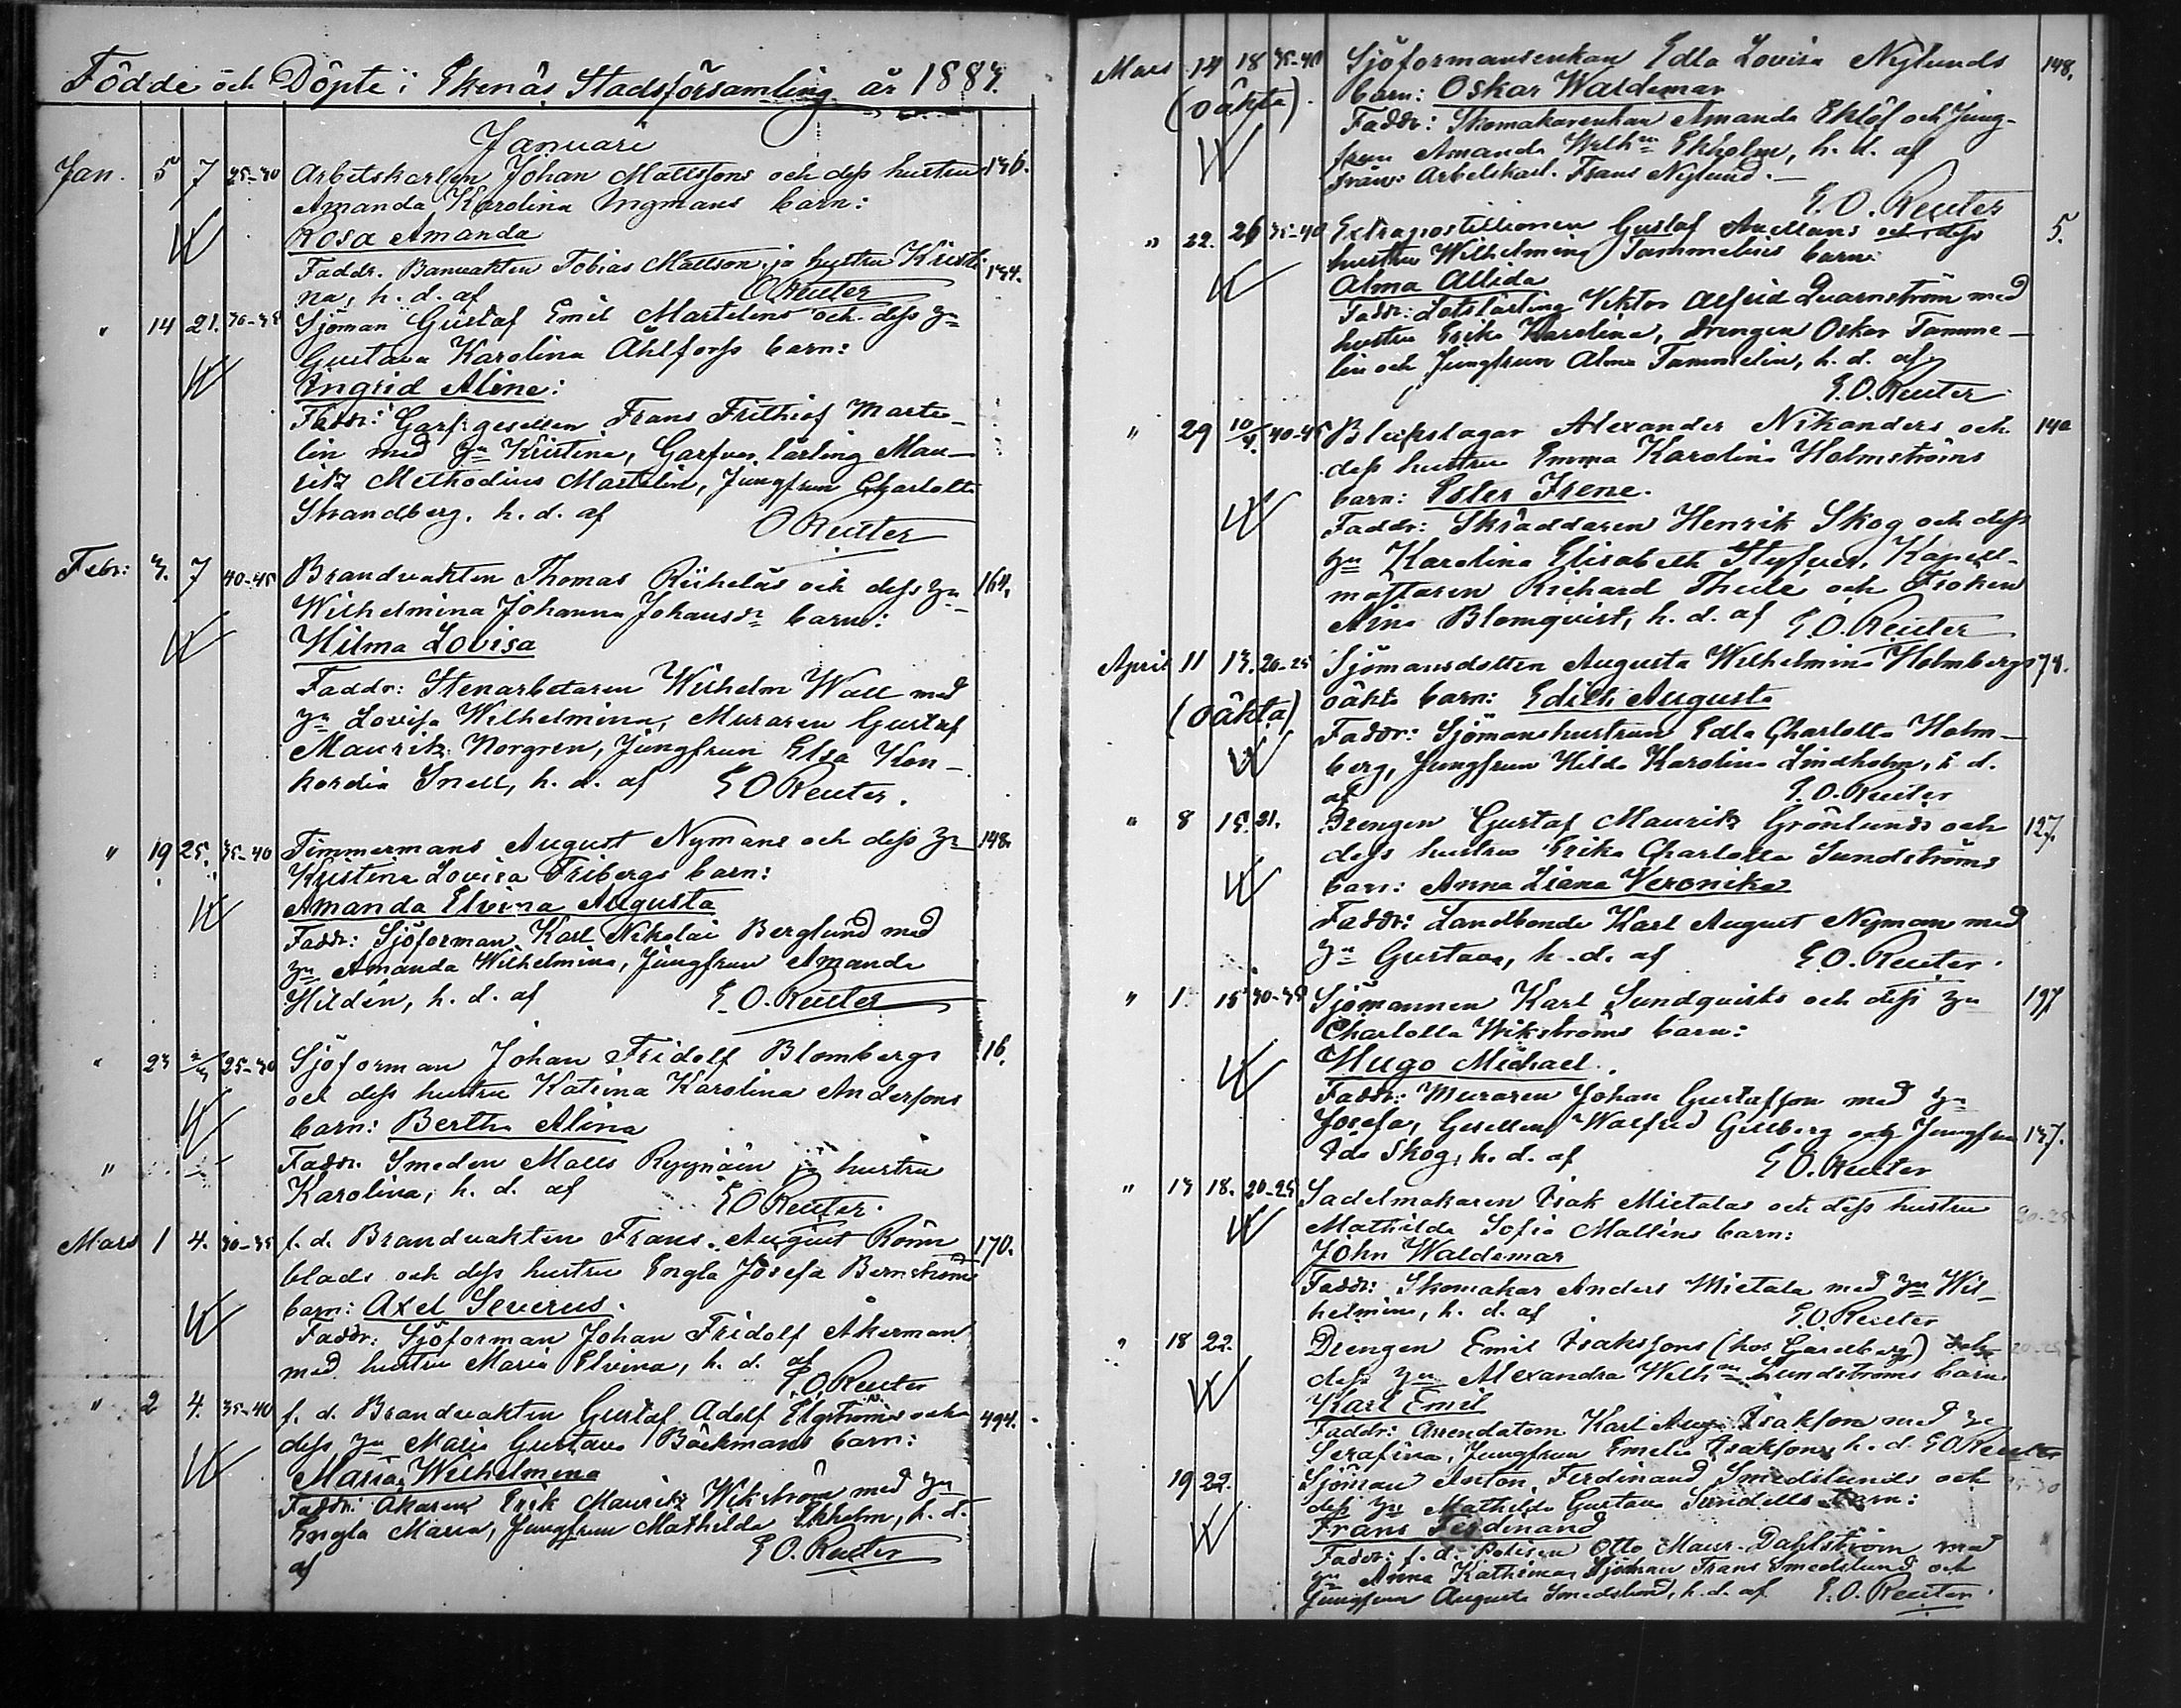 Födde och Döpte i Ekenäs Stadsförsamling år 1883.
Januari
Jan. 5 7 25-30 Arbetskarlen Johan Mattssons och dess hustru 136.
Amanda Karolina Ingmans barn:
Rosa Amanda
Faddr. Banvakten Tobias Mattson jo hustru Kristi- 134.
na, h. d. af O Reuter
" 14 21. 30-35 Sjöman Gustaf Emil Martelins och dess hu
Gustava Karolina Åhlforss barn:
Ingrid Aline:
Faddr: Garf: gesellen Frans Frithiof Marte-
lin med hu Kristina, Garfvar lärling Mau-
ritz Methodius Martelin, Jungfrun Charlotta
Strandberg. h. d. af O Reuter
Febr: 3. 7 40-45 Brandvakten Thomas Riihelös och dess hu 164.
Wilhelmina Johanna Johansdr barn:
Hilma Lovisa
Faddr: Stenarbetaren Wilhelm Wall med
hu Lovisa Wilhelmina, Muraren Gustaf
Mauritz Norgren, Jungfrun Elsa Kon-
kordia Snell, h. d. af E O Reuter.
" 19 25. 35-40 Timmermans August Nymans och dess hu 148.
Kristina Lovisa Fribergs barn:
Amanda Elvina Augusta
Faddr: Sjöforman Karl Nikolai Berglund med
hu Amanda Wilhelmina, Jungfrun Amanda
Hildén, h. d. af E. O. Reuter
" 23 2/3 25-30 Sjöforman Johan Fridolf Blombergs 16.
och dess hustru Katrina Karolina Anderssons
barn: Bertha Alina
" Faddr. Smeden Matts Ryynäin jo hustru
Karolina, h. d. af E O Reuter.
Mars 1 4. 30-35 f. d. Brandvakten Frans August Rönn 170.
blads och dess hustru Engla Josefa Bernströms
barn: Axel Severus.
Faddr: Sjöforman Johan Fridolf Åkerman
med hustru Maria Elvina, h. d. af
E. O. Reuter
" 2 4. 35-40 f. d. Brandvakten Gustaf Adolf Elgströms och 494.
dess hu Maria Gustava Bäckmans barn:
Maria Wilhelmina
Faddr: Åkaren Erik Mauritz Wikström med hu
Engla Maria, Jungfrun Mathilda Ekholm, h. d.
af E O. Reuter
Mars 14 18 35-40 Sjöformansenkan Edla Lovisa Nylunds 148.
(oäkta). barn: Oskar Waldemar
Faddr: Skomakarenkan Amanda Eklöf och Jung-
frun Amanda Welhna Ekholm, h. d. af
Arbetskarl. Frans Nylund.
E. O. Reuter
" 22. 26 35-40 Extrapostillionen Gustaf Anellans och dess 5.
hustru Wilhelmina Tammelins barn:
Alma Allida
Faddr: Lotslärling Viktor Alfrid Quarnström med
hustru Erika Karolina, drengen Oskar Tamme-
lin och Jungfrun Alma Tammelin, h. d. af
E. O. Reuter
" 29 10/4. 40-45 Bleckslagar Alexander Nikanders och 140
dess hustru Emma Karolina Holmströms
barn: Ester Irene.
Faddr: Skräddaren Henrik Skog och dess
hu Karolina Elisabeth Styfver, Kapell-
mästaren Richard Thiele och Fröken
Aina Blomqvist, h. d. af E O. Reuter
April 11 13. 20-25 Sjömansdottern Augusta Wilhelmina Holmbergs 78.
(oäkta) oäkta barn: Edith Augusta
Faddr: Sjömanshustrun Edla Charlotta Holm-
berg, Jungfrun Hilda Karolina Lindholm, h. d.
af E. O. Reuter
" 8 15. 21. Drengen Gustaf Mauritz Grönlunds och 127.
dess hustru Erika Charlotta Sundströms
barn: Anna Liana Veronika
Faddr: Landbonde Karl August Nyman med
hu Gustava, h. d. af E. O. Reuter.
" 1. 15 30-35 Sjömannen Karl Lundqvists och dess hu 197
Charlotta Wikströms barn:
Hugo Michael.
Faddr: Muraren Johan Gustafsson med hu
Josefa, Gesellen Walfrid Gillberg och Jungfrun 137.
Ida Skog, h. d. af E O. Reuter
" 13 18. 20-25 Sadelmakaren Isak Mietalas och dess hustru 20-25
Mathilda Sofia Malléns barn:
John Waldemar
Faddr: Skomakar Anders Mietala med hu Wil-
helmina, h. d. af E. O. Reuter
" 18 22. Drengen Emil Isakssons (hos Gardberg) och 20-25
dess hu Alexandra Welhna Lundströms barn
Karl Emil
Faddr: Arrendatorn Karl Aug. Isaksson med hu
Serafina, Jungfrun Emelie Isaksson h. d. E O Reuter
19 22. Sjöman Anton Ferdinand Smedslunds och 25-30
dess hu Mathilda Gustava Sundells barn:
Frans Ferdinand
Faddr: f. d. Polisen Otto Maur. Dahlström med
hu Anna Kathrina, Sjöman Frans Smedslund och
Jungfrun Augusta Smedslund, h. d. af E. O. Reuter.